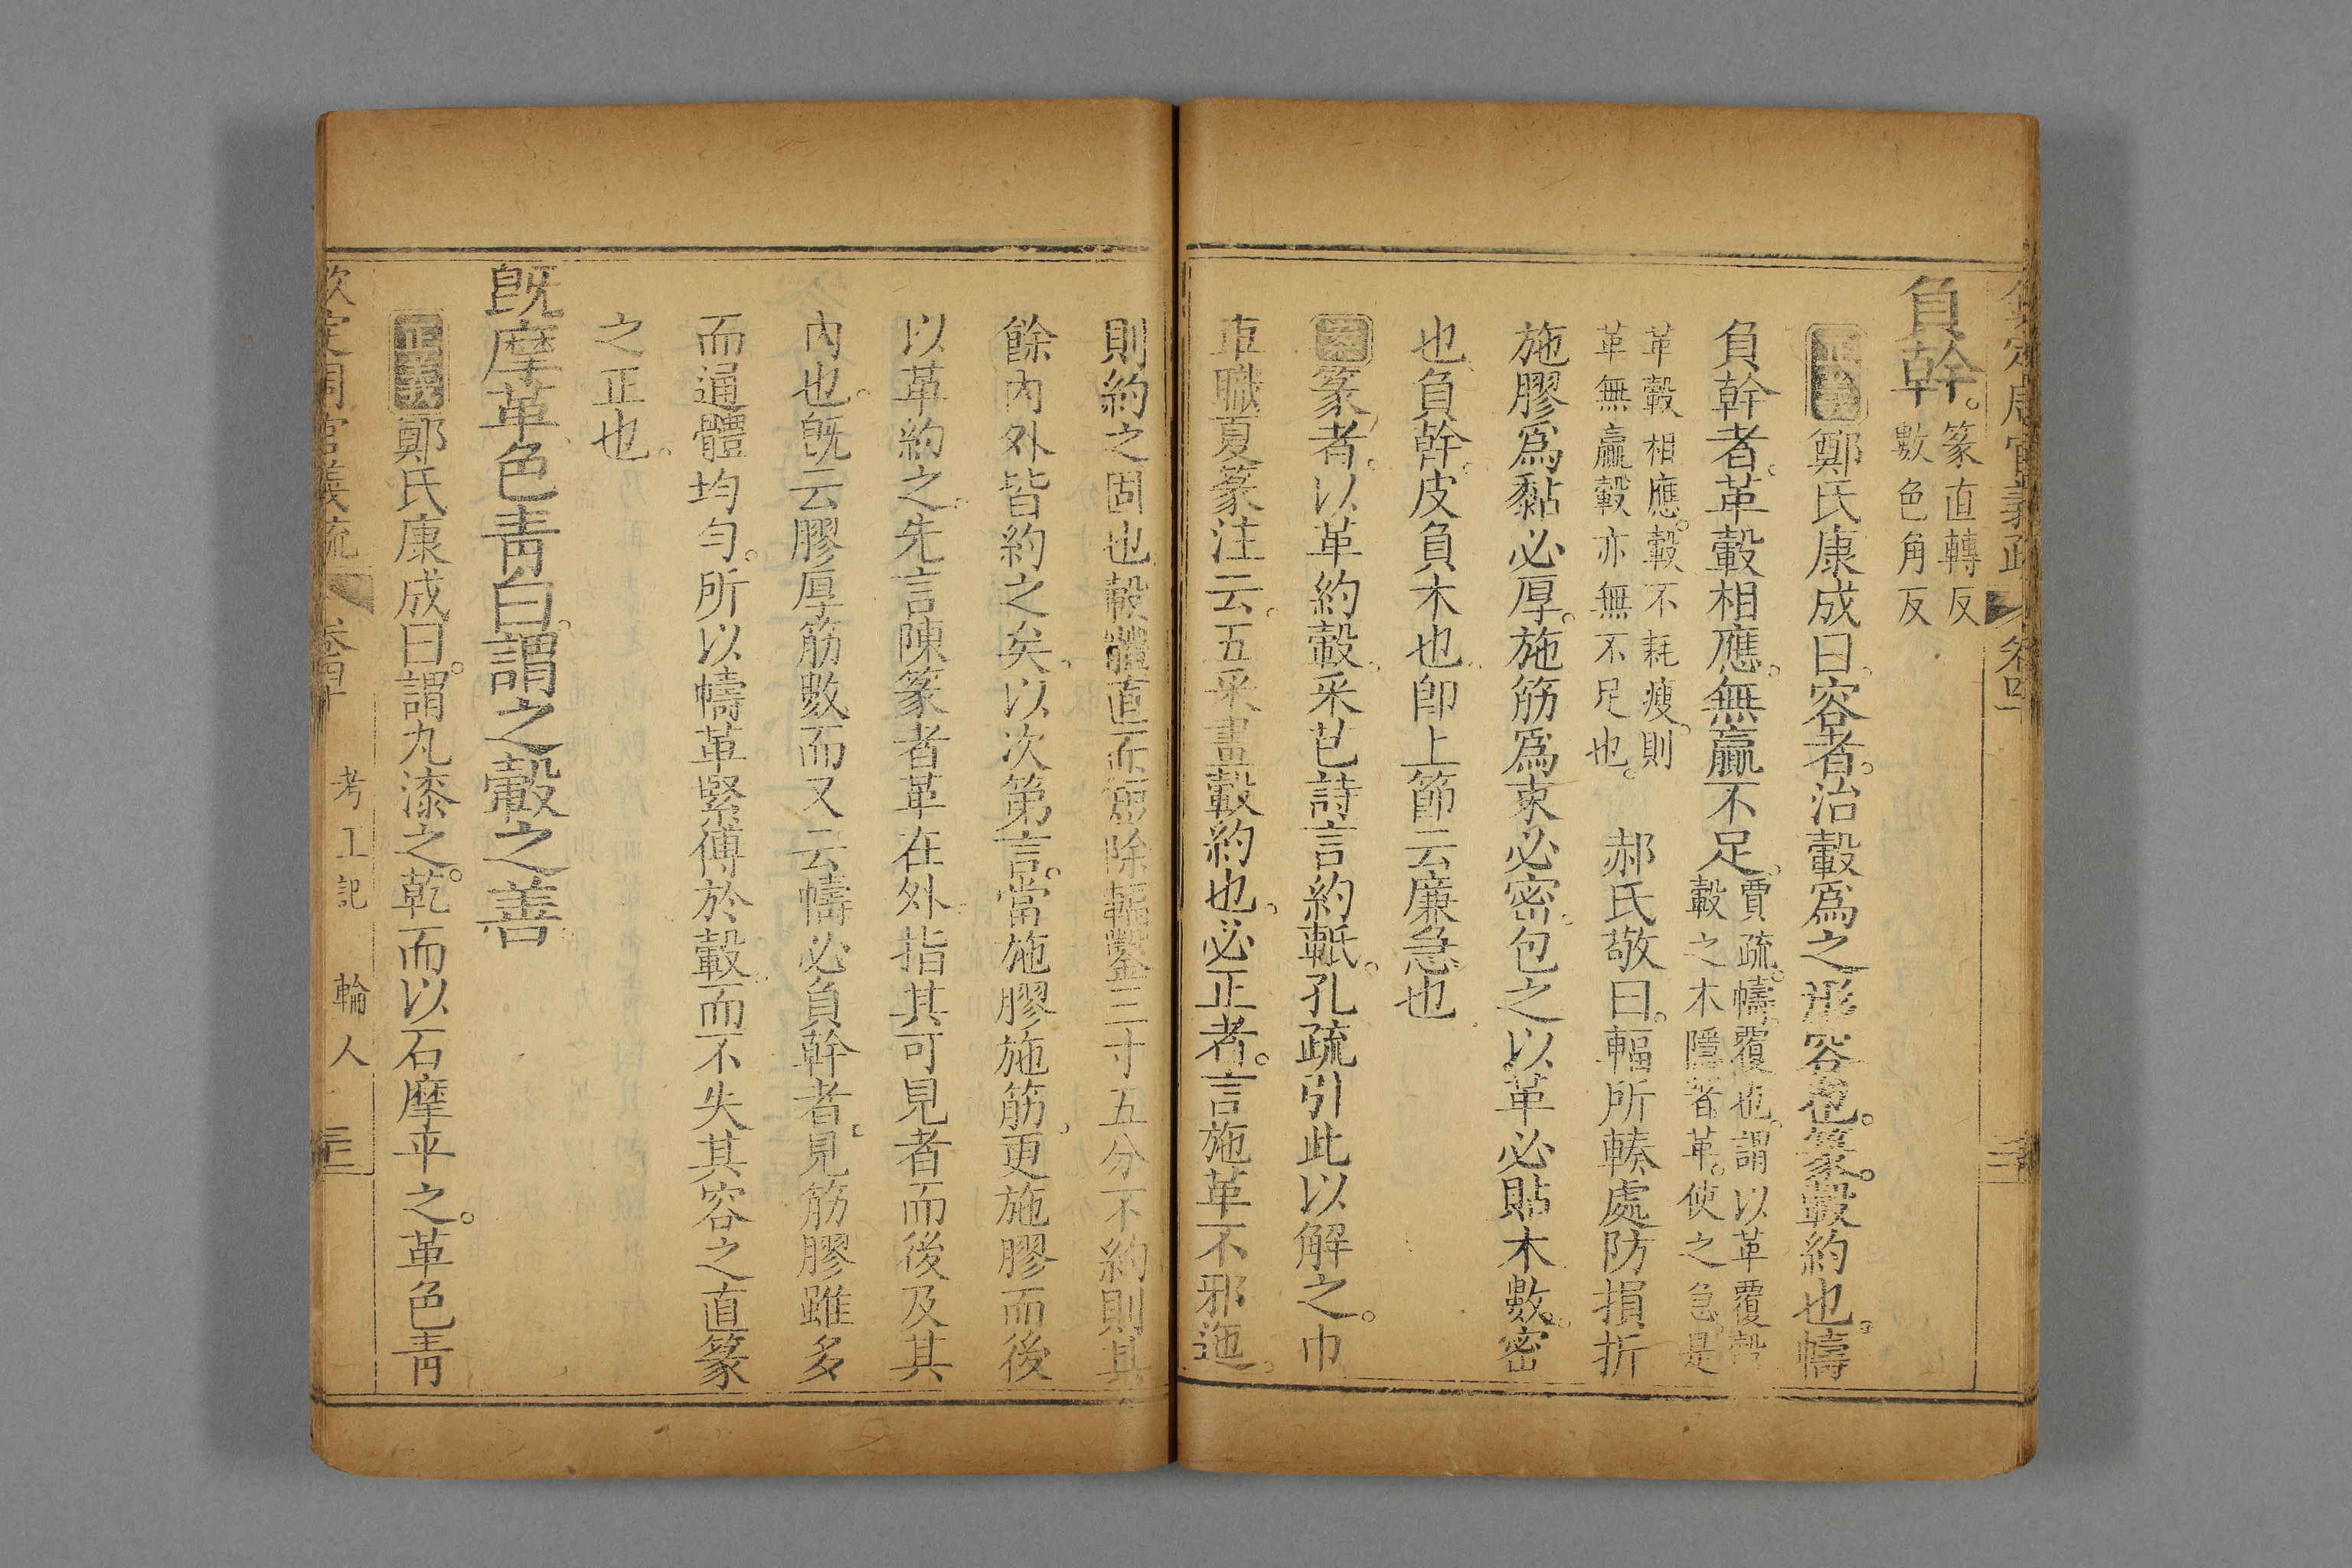 負幹。篆直轉反
數色角反
正義鄭氏康成曰。容者。治轂爲之形容也。篆。轂約也。幬
負幹者。革轂相應。無贏不足。賈疏。幬。覆也。謂以革覆轂
轂之木。隱著革。使之急。是
革轂相應。轂不耗瘦。則
革無贏。轂亦無不足也。 郝氏敬曰。輻所輳處防損折
施膠爲黏必厚。施筋爲束必密。包之以革必貼木數。密
也。負幹。皮負木也。卽上節云廉急也
篆者。以革約轂。釆芑詩言約軧。孔疏引此以解之。巾
車職夏篆注云。五采畫轂約也。必正者。言施革不邪迤。
則約之固也轂體直
除輻鑿三寸五分不約則其
餘內外皆約之矣。以次第言。當施膠施筋。更施膠而後
以革約之。先言陳篆者革在外。指其可見者而後及其
內也。旣云膠厚筋數而又云幬必負幹者。見筋膠雖多
而通體均勻。所以幬革緊傅於轂。而不失其容之直篆
之正也。
旣摩革色靑白。謂之轂之善
正義鄭氏康成曰。謂丸漆之。乾而以石摩平之。革色靑
欽定周官義疏 卷四十 考工記 輪人 三